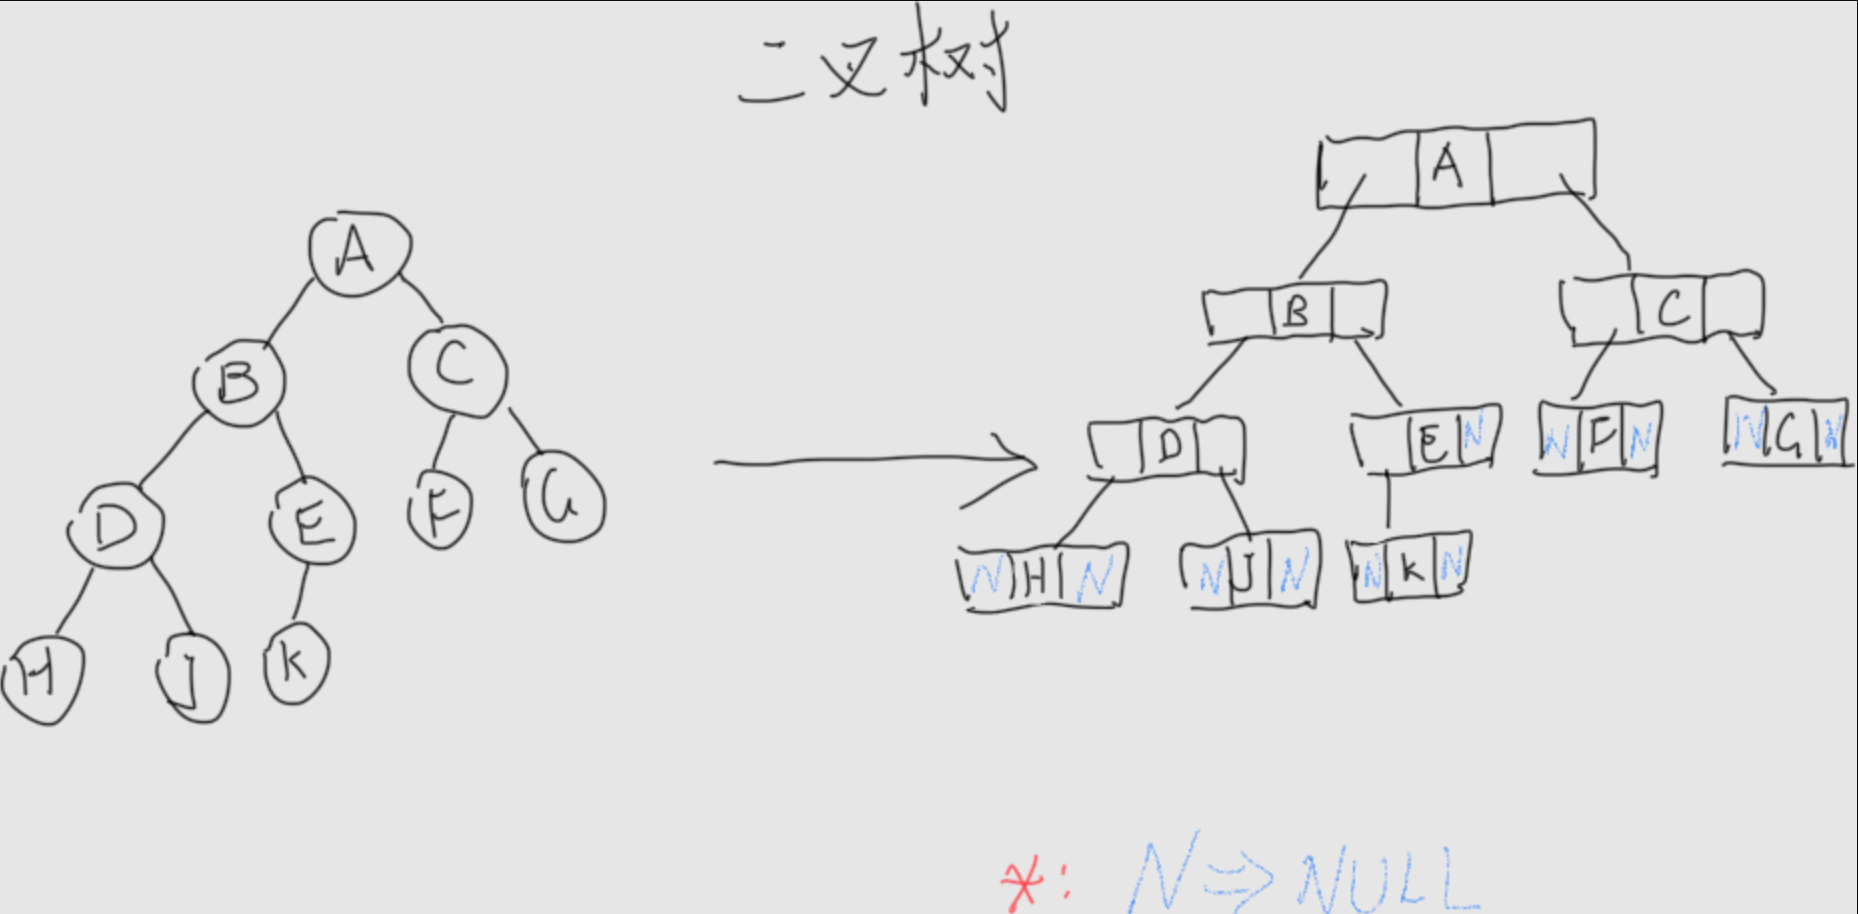 二叉树
A
B C
D E F G
H J K
A
B C
D E N N F N N G N
N H N N J N N K N
*: N ⇒ NULL